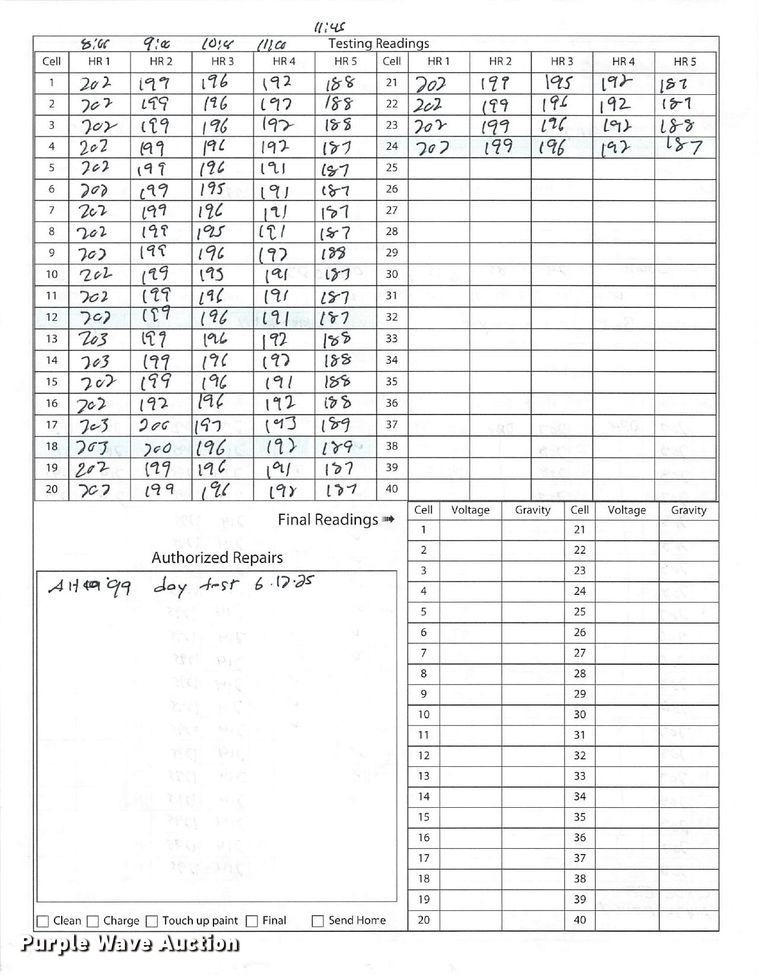 11:45
8:00 9:00 10:00 11:00 Testing Readings
Cell HR 1 HR 2 HR 3 HR 4 HR 5 Cell HR 1 HR 2 HR 3 HR 4 HR 5
1 202 199 196 192 188 21 202 199 195 192 187
2 202 199 196 192 188 22 202 199 196 192 187
3 202 199 196 192 188 23 202 199 196 192 188
4 202 199 196 192 187 24 202 199 196 192 187
5 202 199 196 191 187 25
6 202 199 195 191 187 26
7 202 199 196 191 187 27
8 202 199 195 191 187 28
9 202 199 196 192 188 29
10 202 199 195 191 187 30
11 202 199 196 191 187 31
12 202 199 196 191 187 32
13 203 199 196 192 188 33
14 203 199 196 192 188 34
15 202 199 196 191 188 35
16 202 192 196 192 188 36
17 203 200 197 193 189 37
18 203 200 196 192 189 38
19 202 199 196 191 187 39
20 202 199 196 192 187 40
Final Readings
Cell Voltage Gravity Cell Voltage Gravity
1 21
2 22
3 23
4 24
5 25
6 26
7 27
8 28
9 29
10 30
11 31
12 32
13 33
14 34
15 35
16 36
17 37
18 38
19 39
20 40
Authorized Repairs
day test 6.12.25
Clean Charge Touch up paint Final Send Home
Purple Wave Auction